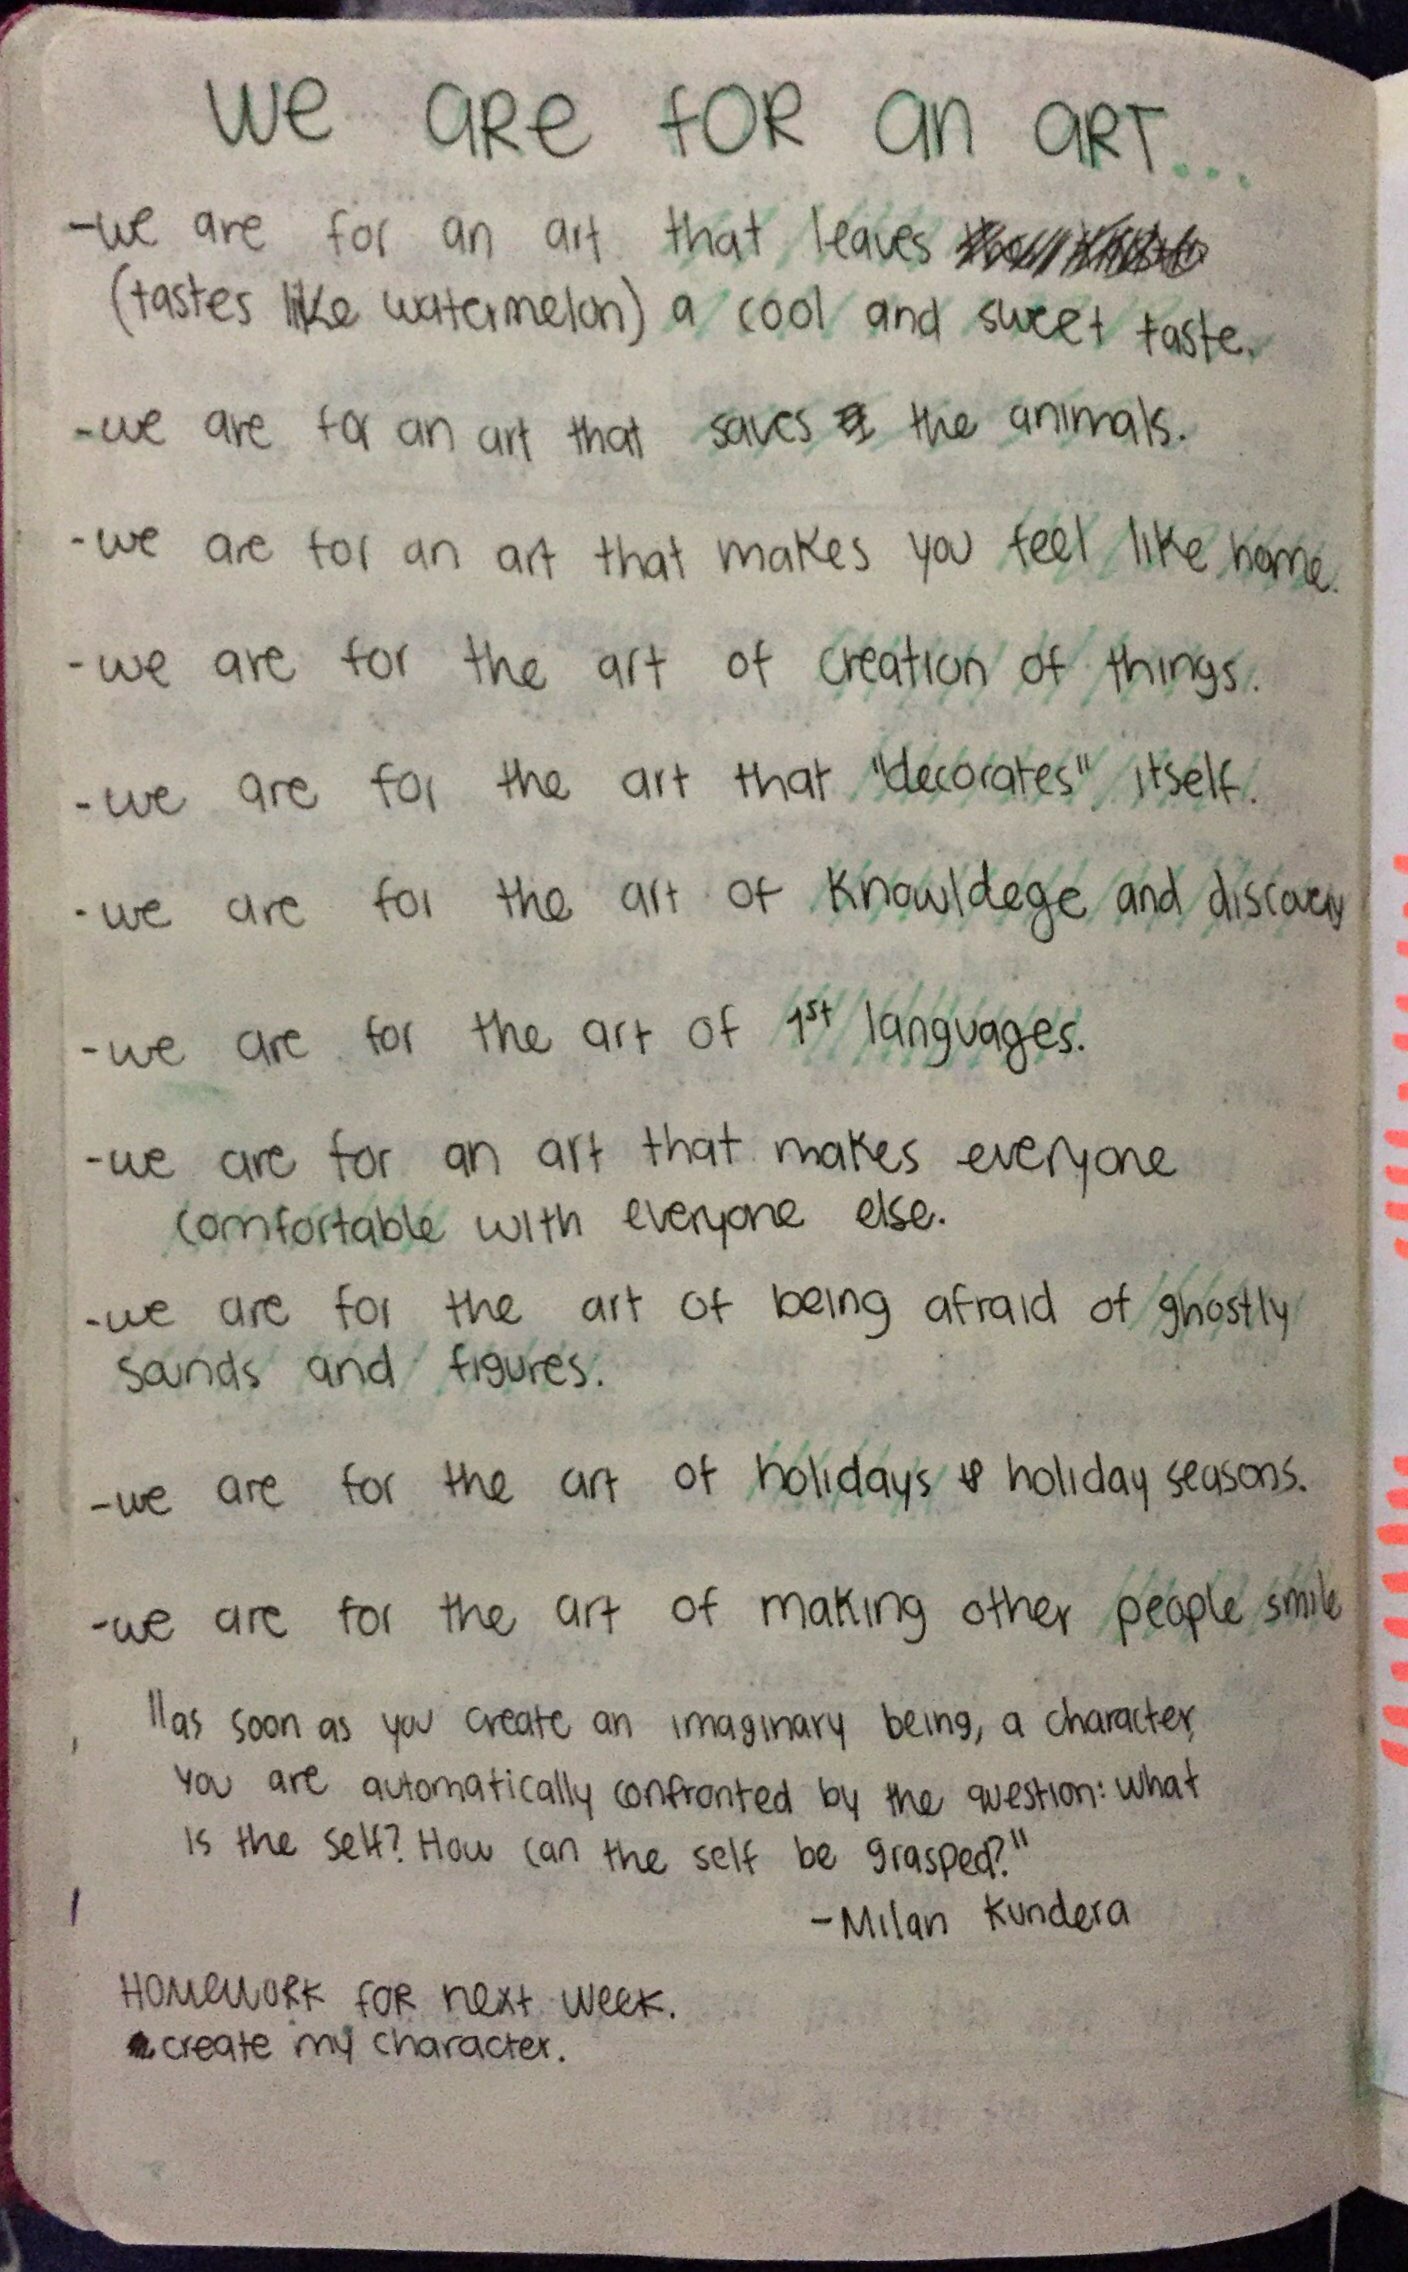 We are for an art...
-we are for an art that leaves
(tastes like watermelon) a cool and sweet taste.
-we are for an art that saves the animals.
-we are for an art that makes you feel like home.
-we are for the art of creation of things.
-we are for the art that "decorates" itself.
-we are for the art of knowldege and discovery
-we are for the art of 1st languages.
-we are for an art that makes everyone
comfortable with everyone else.
-we are for the art of being afraid of ghostly
sounds and figures.
-we are for the art of holidays & holiday seasons.
-we are for the art of making other people smile
"as soon as you create an imaginary being, a character,
you are automatically confronted by the question: what
is the self? How can the self be grasped?"
-Milan Kundera
Homework for next week.
create my character.